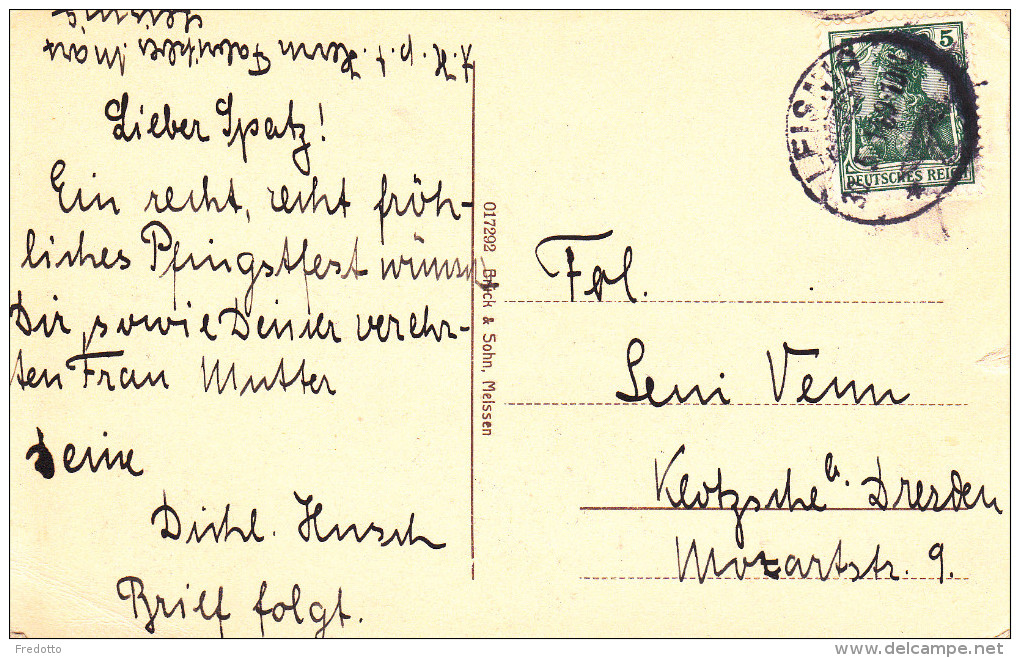 Lieber Spatz!
Ein recht, recht fröh-
liches Pfingstfest wünscht
Dir, sowie Deiner verehr-
ten Frau Mutter
Deine
Husch
Brief folgt.
017292 Brück & Sohn, Meissen
LEISNIG
5
DEUTSCHES REICH
Frl.
Leni Venn
Klotzsche b. Dresden
Mozartstr. 9.
Fredotto
delcampe.net